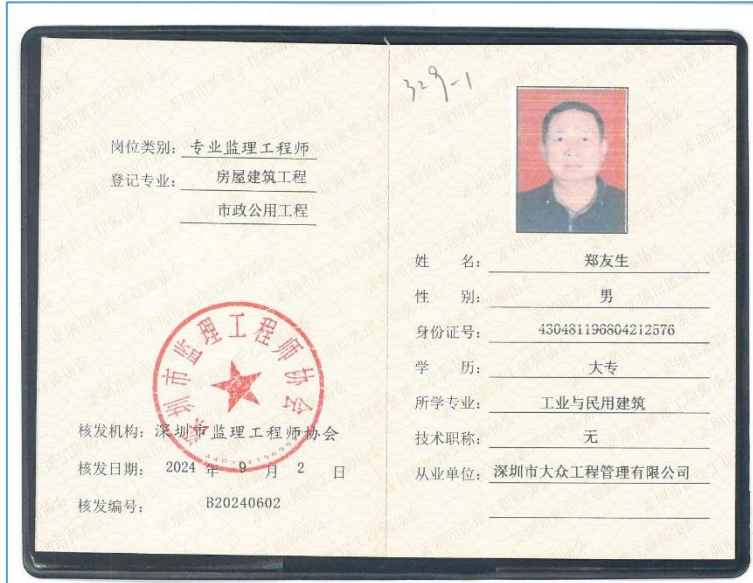 岗位类别: 专业监理工程师
登记专业: 房屋建筑工程
市政公用工程
深圳市监理工程师协会
核发机构: 深圳市监理工程师协会
核发日期: 2024 年 9 月 2 日
核发编号: B20240602
329-1
姓 名: 郑友生
性 别: 男
身份证号: 430481196804212576
学 历: 大专
所学专业: 工业与民用建筑
技术职称: 无
从业单位: 深圳市大众工程管理有限公司